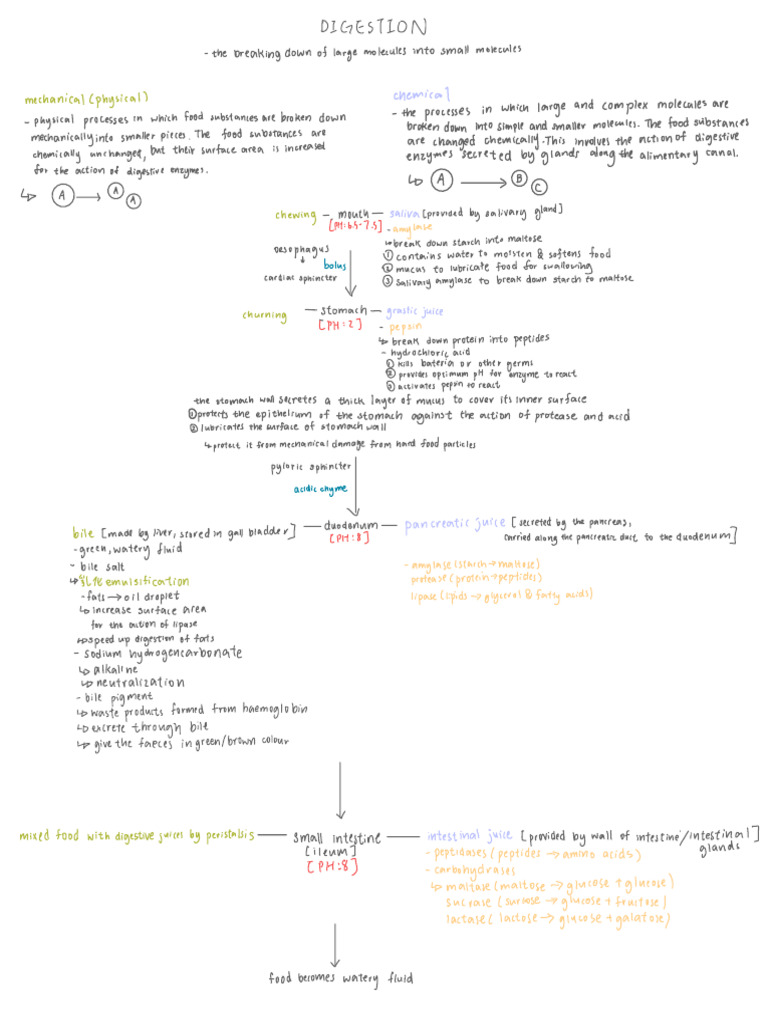 DIGESTION
- the breaking down of large molecules into small molecules
mechanical (physical)
- physical processes in which food substances are broken down
mechanically into smaller pieces. The food substances are
chemically unchanged, but their surface area is increased
for the action of digestive enzymes.
↳ A → A A
chemical
- the processes in which large and complex molecules are
broken down into simple and smaller molecules. The food substances
are changed chemically. This involves the action of digestive
enzymes secreted by glands along the alimentary canal.
↳ A → B C
chewing - mouth - saliva [provided by salivary gland]
[PH: 6.5-7.5]
- amylase
↳ break down starch into maltose
① contains water to moisten & softens food
② mucus to lubricate food for swallowing
③ salivary amylase to break down starch to maltose
oesophagus
↓
cardiac sphincter
bolus
churning - stomach - grastic juice
[PH: 2]
- pepsin
↳ break down protein into peptides
- hydrochloric acid
① kills bateria or other germs
② provides optimum pH for enzyme to react
③ activates pepin to react
the stomach wall secretes a thick layer of mucus to cover its inner surface
① protects the epithelium of the stomach against the action of protease and acid
② lubricates the surface of stomach wall
↳ protect it from mechanical damage from hard food particles
pyloric sphincter
acidic chyme
bile [made by liver, stored in gall bladder] - duodenum - pancreatic juice [secreted by the pancreas,
[PH: 8]
carried along the pancreatic duct to the duodenum]
- green, watery fluid
- bile salt
↳ emulsification
- fats → oil droplet
↳ increase surface area
for the action of lipase
↳ speed up digestion of fats
- sodium hydrogencarbonate
↳ alkaline
↳ neutralization
- bile pigment
↳ waste products formed from haemoglobin
↳ excrete through bile
↳ give the faeces in green/brown colour
- amylase (starch → maltose)
protease (protein → peptides)
lipase (lipids → glycerol & fatty acids)
mixed food with digestive juices by peristalsis - small intestine - intestinal juice [provided by wall of intestine/intestinal]
glands
[ileum]
[PH: 8]
- peptidases (peptides → amino acids)
- carbohydrases
↳ maltase (maltose → glucose + glucose)
sucrase (surose → glucose + fructose)
lactase (lactose → glucose + galatose)
food becomes watery fluid